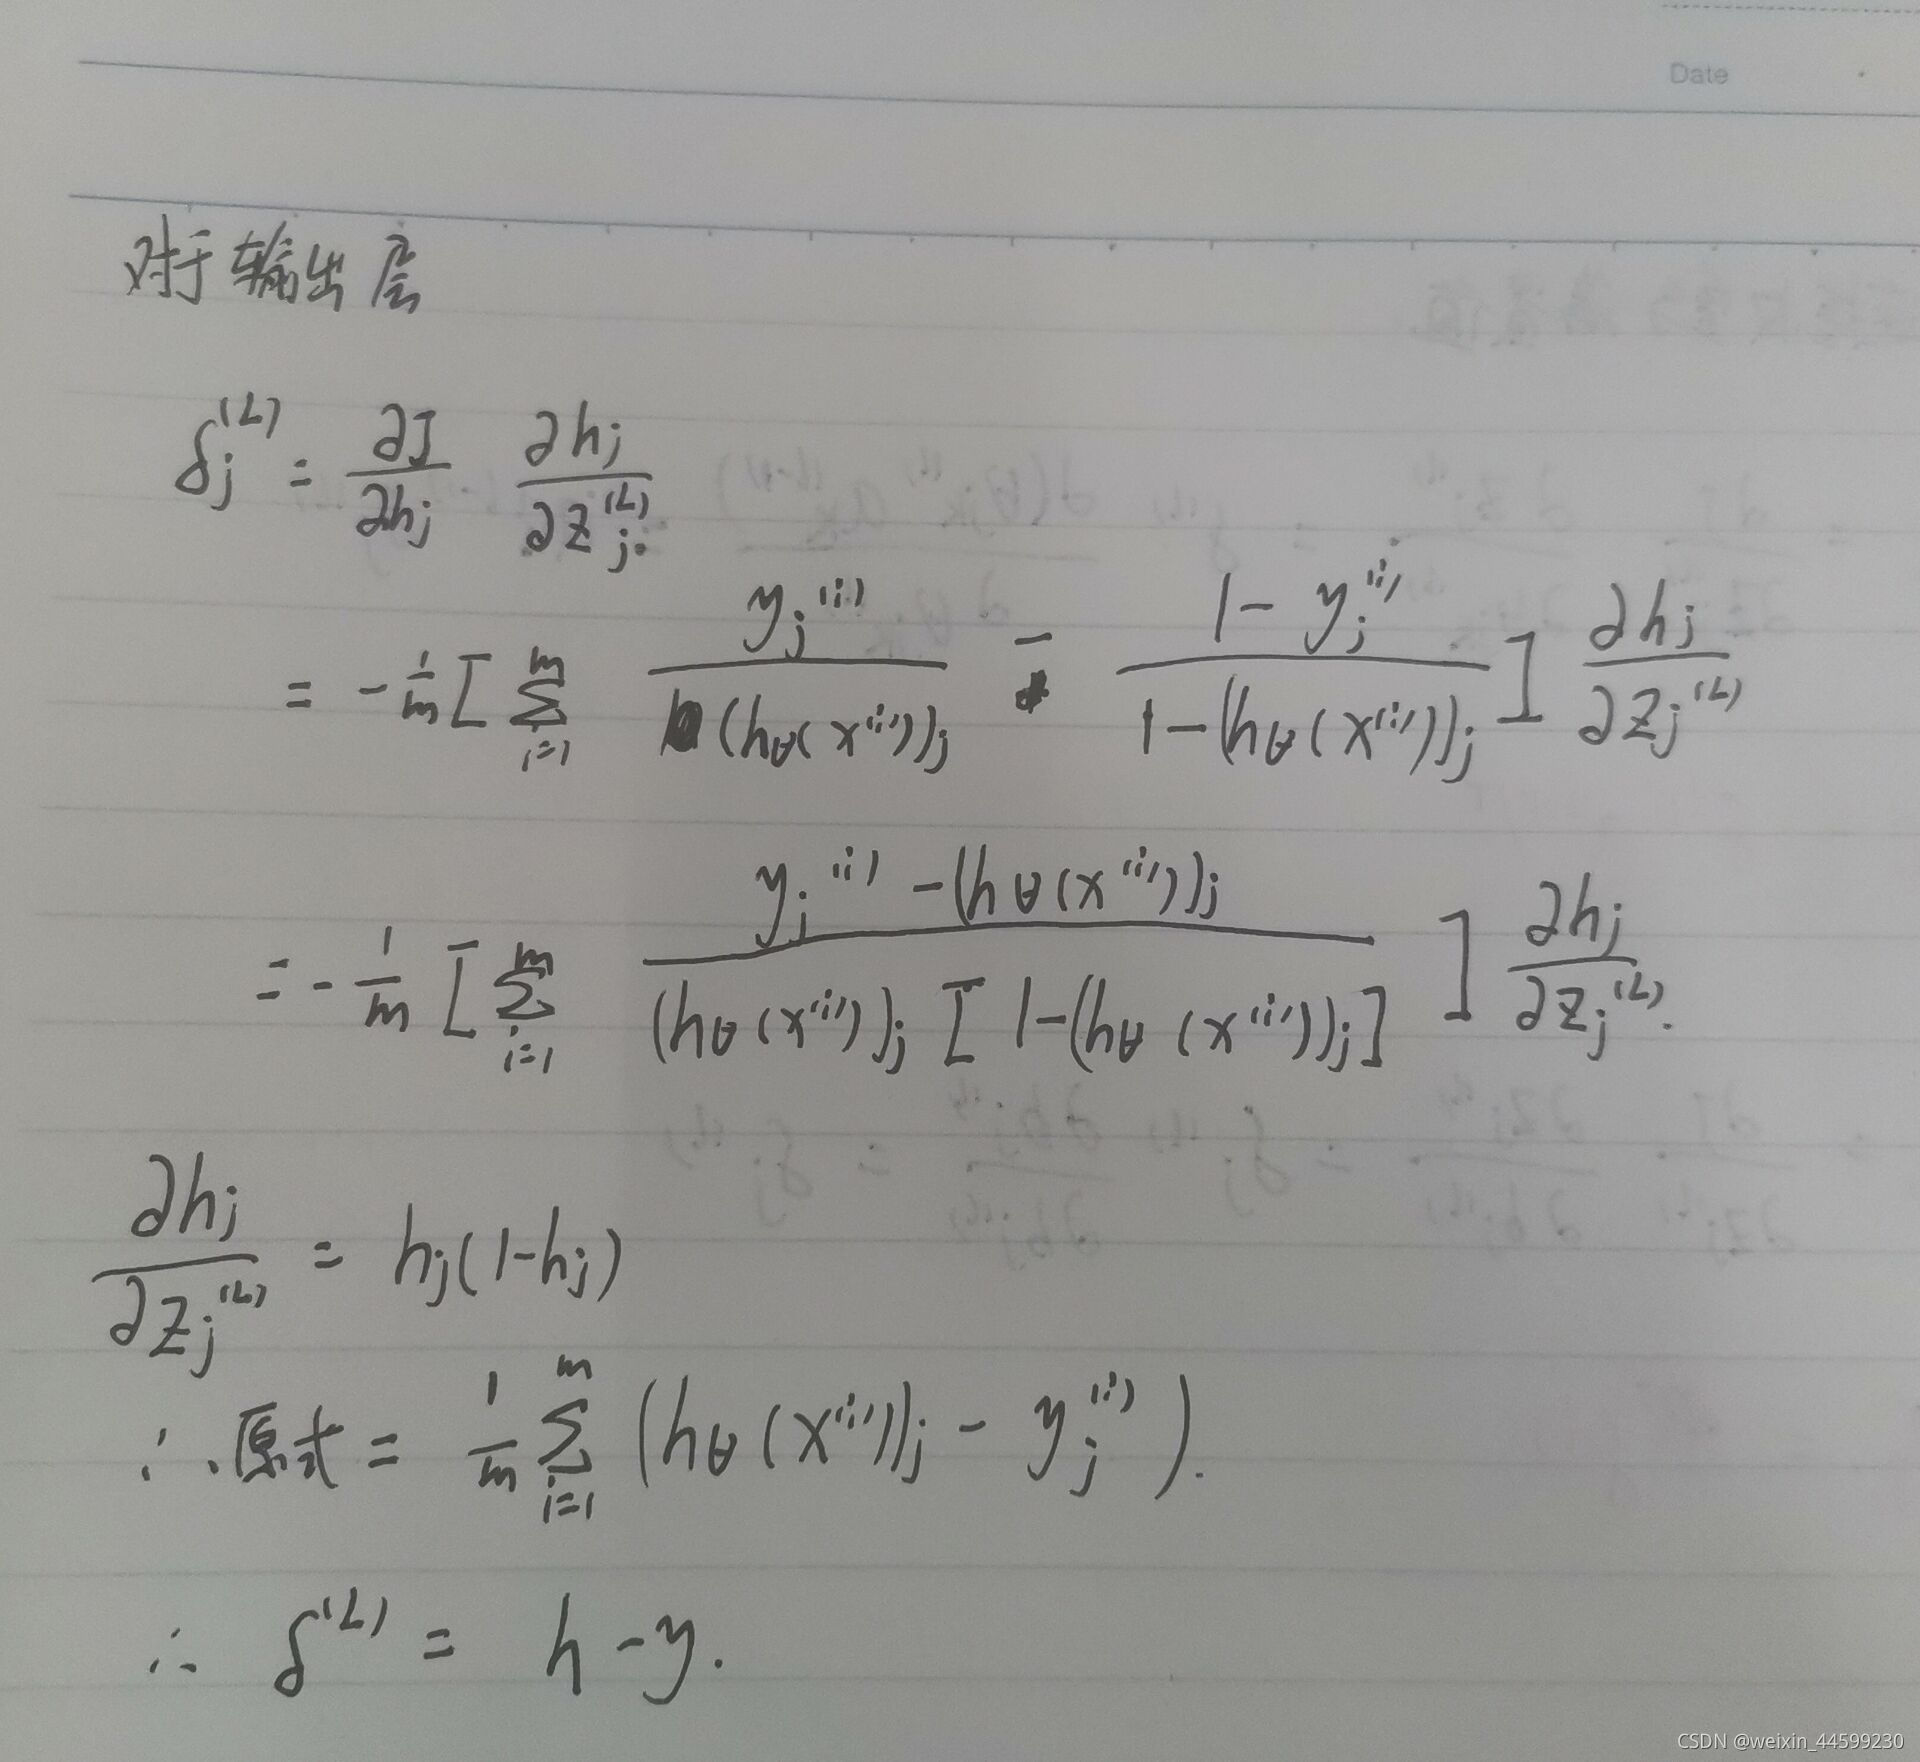 Date
对于输出层
δⱼ^(L) = ∂J/∂hⱼ ∂hⱼ/∂zⱼ^(L)
= -1/m [ Σ_{i=1}^{m} yⱼ^(i) / (hθ(x^(i)))ⱼ - (1 - yⱼ^(i)) / (1-(hθ(x^(i)))ⱼ) ] ∂hⱼ/∂zⱼ^(L)
= -1/m [ Σ_{i=1}^{m} (yⱼ^(i) - (hθ(x^(i)))ⱼ) / ((hθ(x^(i)))ⱼ [1-(hθ(x^(i)))ⱼ]) ] ∂hⱼ/∂zⱼ^(L).
∂hⱼ/∂zⱼ^(L) = hⱼ(1-hⱼ)
∴原式 = 1/m Σ_{i=1}^{m} (hθ(x^(i))ⱼ - yⱼ^(i)).
∴ δ^(L) = h-y.
CSDN @weixin_44599230